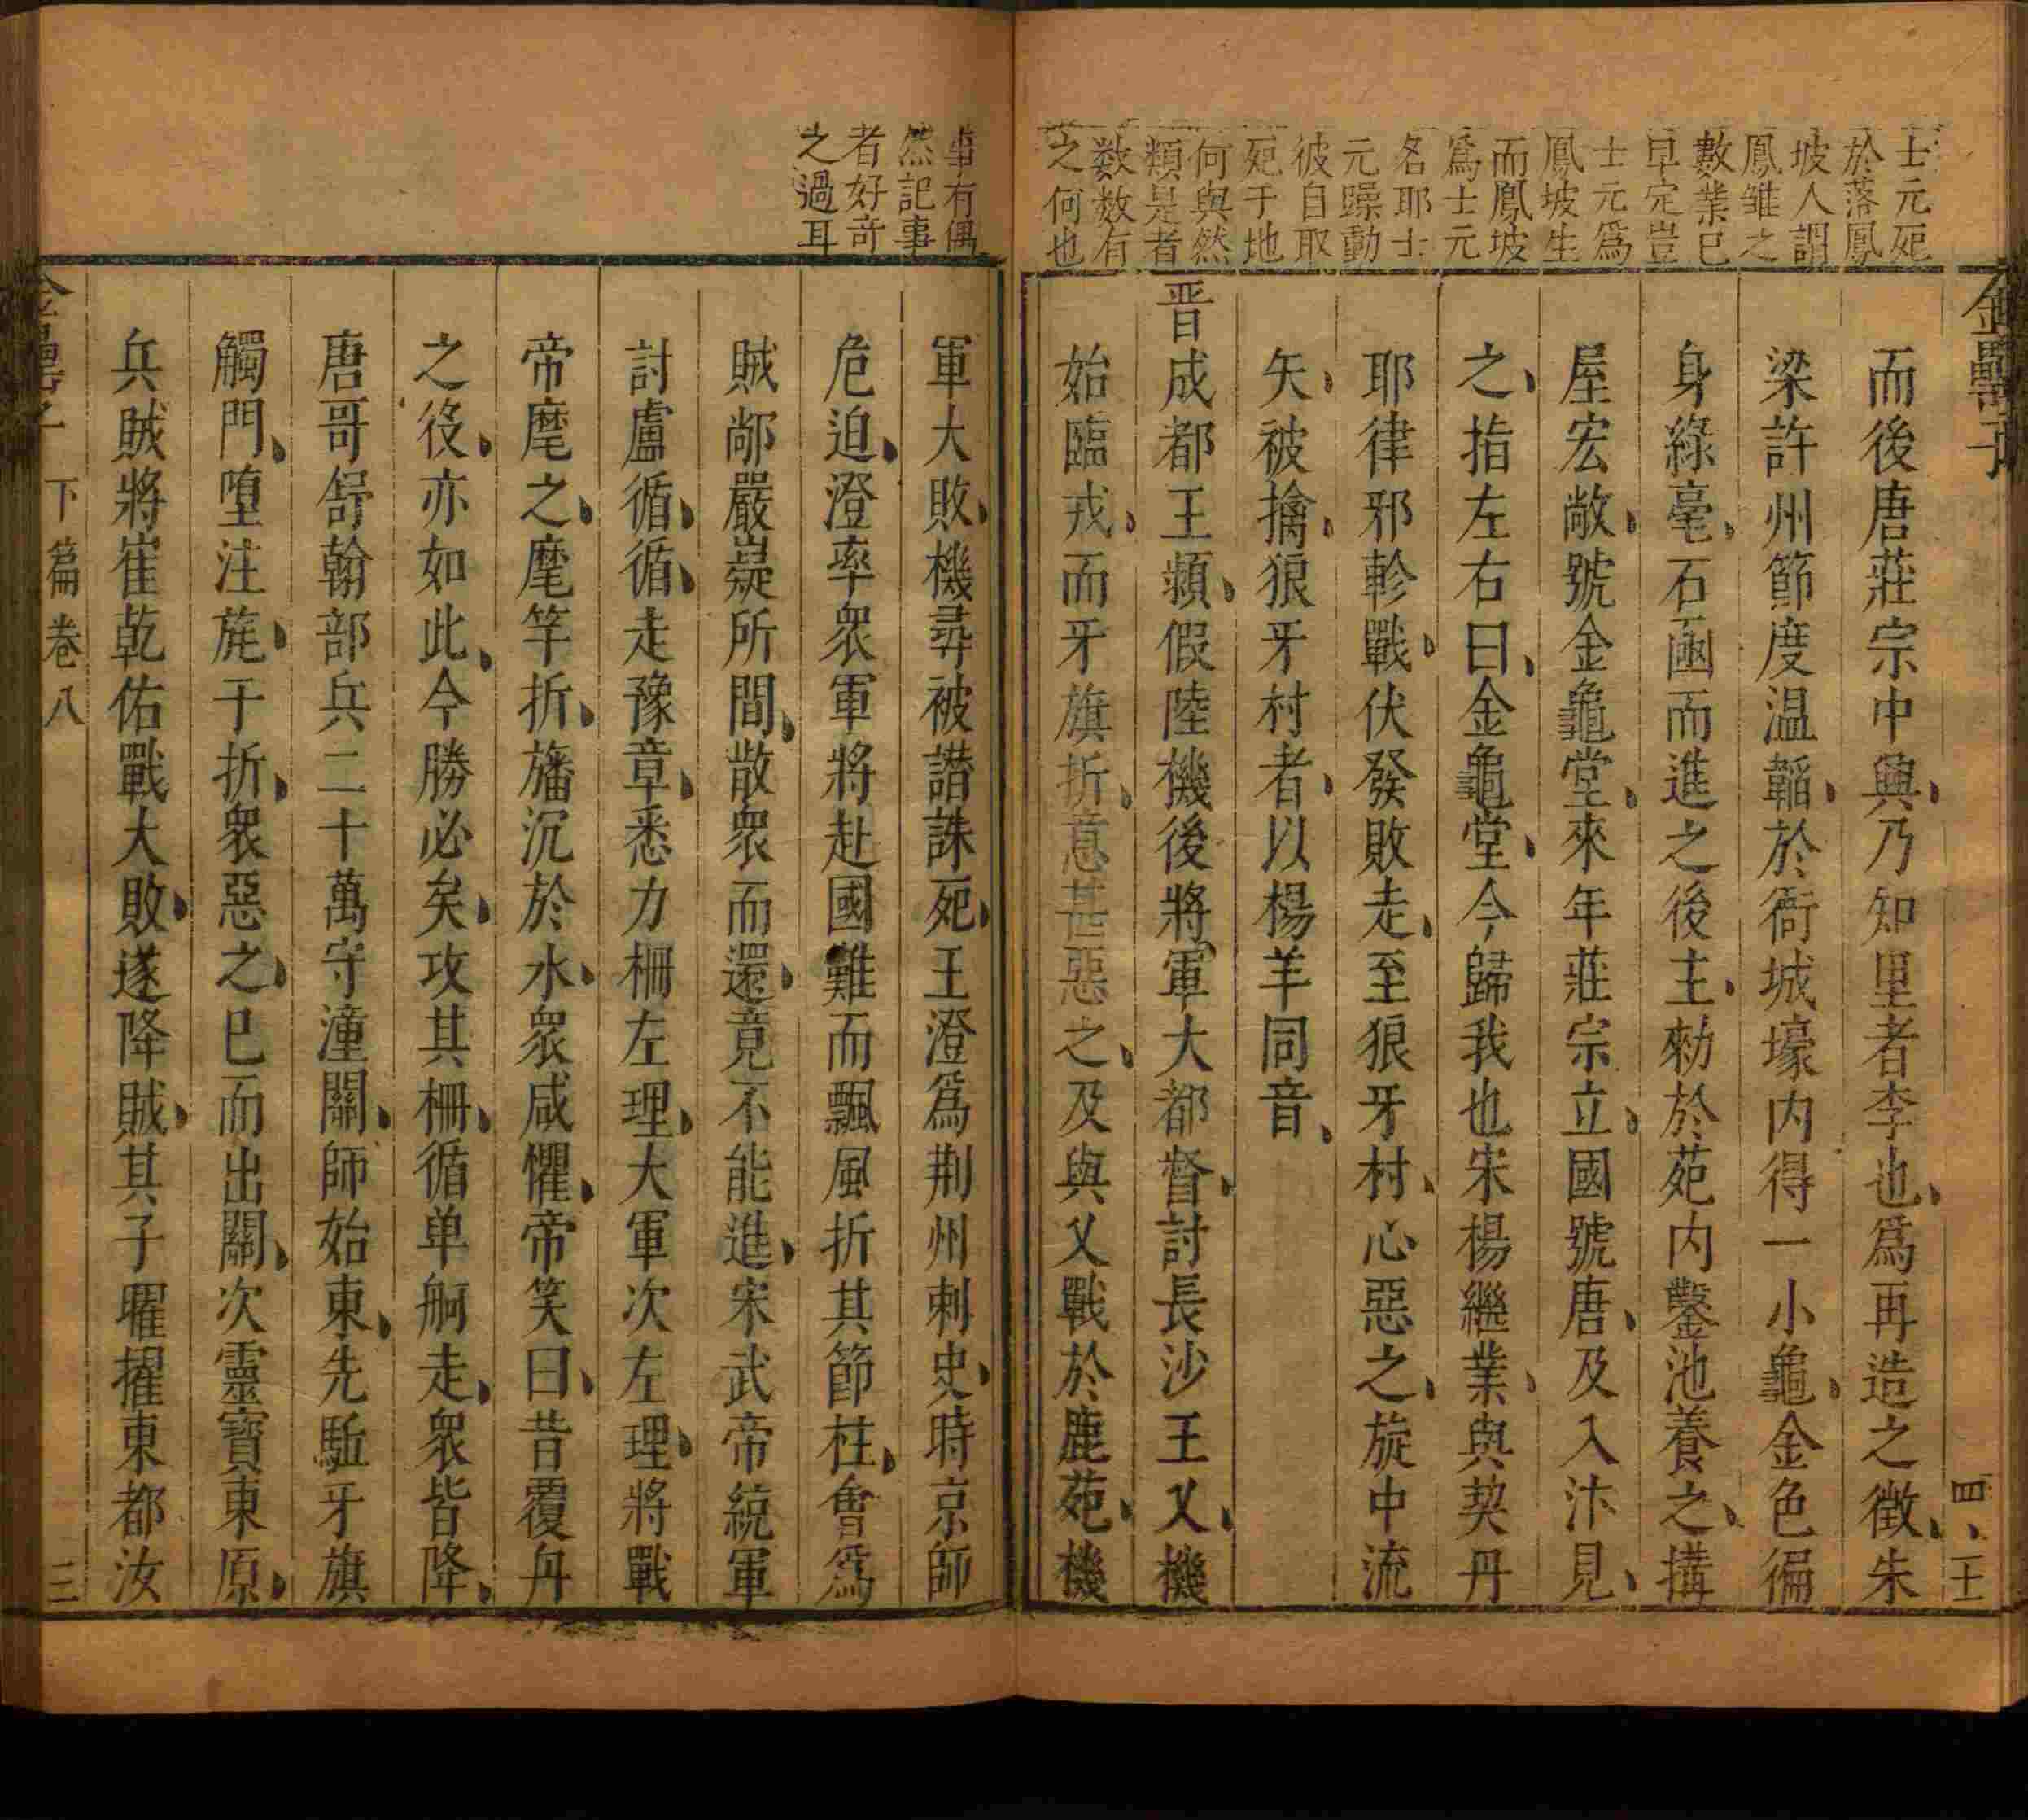 金罍子
四、王
士元死
於落鳳
坡人謂
鳳雛之
數業已
早定豈
士元爲
鳳坡生
而鳳坡
爲士元
名耶士
元躁動
彼自取
死于地
何與然
類是者
数数有
之何也
而後唐莊宗中興乃知里者李也爲再造之徴朱
梁許州節度温韜於衙城壕内得一小龜金色徧
身綠毫石函而進之後主勑於苑内鑿池養之搆
屋宏敞號金龜堂來年莊宗立國號唐及入汴見
之指左右曰金龜堂今歸我也宋楊繼業與契丹
耶律邪軫戰伏發敗走至狼牙村心惡之旋中流
矢被擒狼牙村者以楊羊同音
晋成都王頴假陸機後將軍大都督討長沙王乂機
始臨戎而牙旗折意甚惡之及與乂戰於鹿苑機
事有偶
然記事
者好奇
之過耳
軍大敗機尋被譖誅死王澄爲荆州刺史時京師
危迫澄率衆軍將赴國難而飄風折其節柱會爲
賊鄗嚴嶷所間散衆而還竟不能進宋武帝統軍
討盧循循走豫章悉力柵左理大軍次左理將戰
帝麾之麾竿折旛沉於水衆咸懼帝笑曰昔覆舟
之役亦如此今勝必矣攻其柵循单舸走衆皆降
唐哥舒翰部兵二十萬守潼關師始東先駈牙旗
觸門墮注旄干折衆惡之巳而出關次靈寶東原
兵賊將崔乾佑戰大敗遂降賊其子曜擢東都汝
金罍子 下篇卷八
三